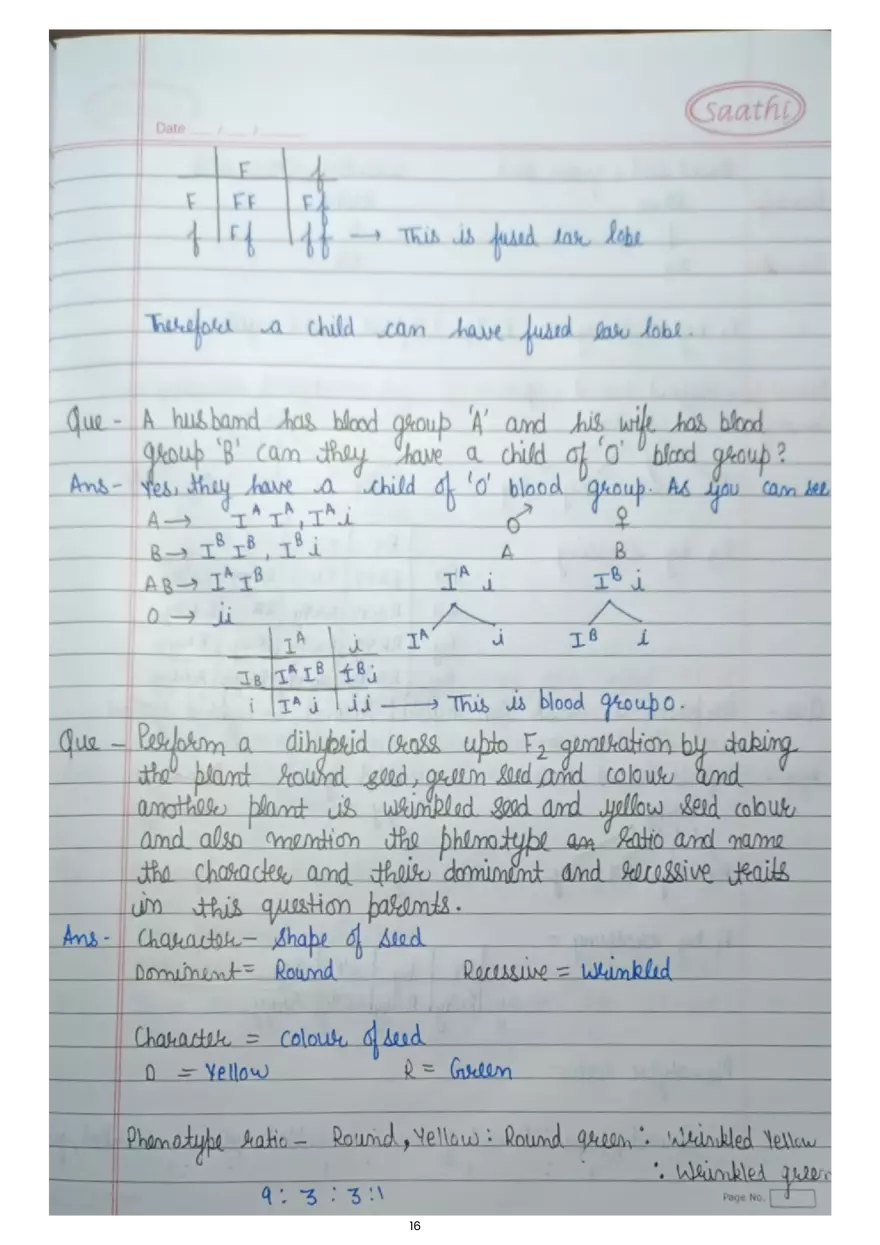 Saathi
Date
F f
F FF Ff
f Ff ff → This is fused ear lobe
Therefore a child can have fused ear lobe.
Que - A husband has blood group 'A' and his wife has blood
group 'B' can they have a child of 'O' blood group?
Ans - Yes, they have a child of 'O' blood group. As you can see
A → I^A I^A, I^A i ♂ ♀
B → I^B I^B, I^B i A B
AB → I^A I^B I^A i I^B i
O → ii I^A i I^B i
I^A i
I_B I^A I^B I^B i
i I^A i ii → This is blood group O.
Que - Perform a dihybrid cross upto F₂ generation by taking
the plant round seed, green seed and colour and
another plant is wrinkled seed and yellow seed colour
and also mention the phenotype an ratio and name
the character and their dominent and recessive traits
in this question parents.
Ans - Character - Shape of seed
Dominent = Round Recessive = Wrinkled
Character = colour of seed
D = Yellow R = Green
Phenotype ratio - Round, Yellow : Round green : Wrinkled Yellow
: Wrinkled green
9 : 3 : 3 : 1
Page No.
16